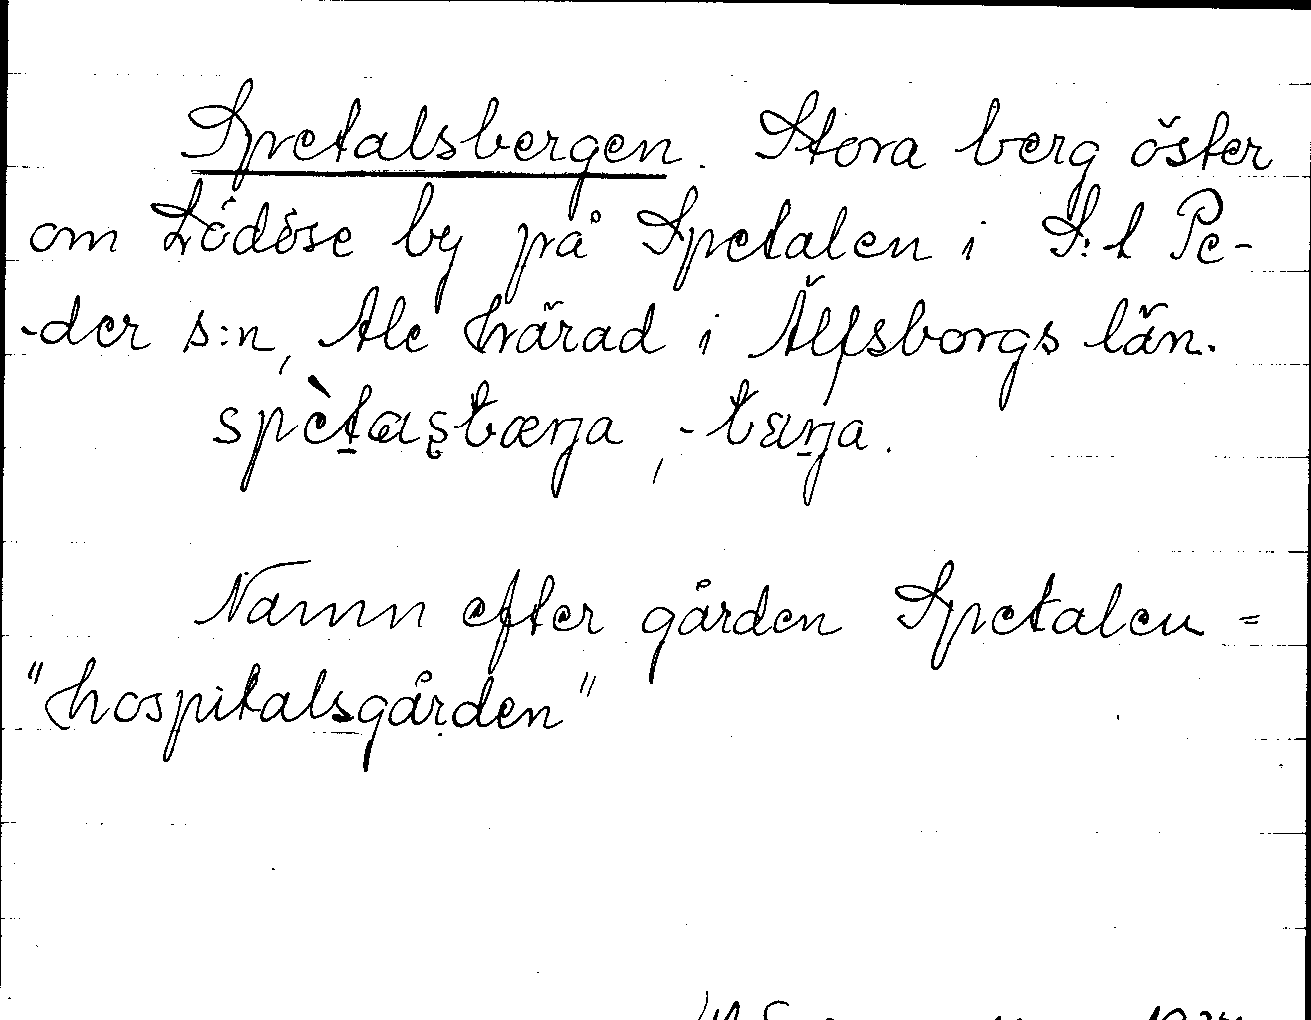 Spetalsbergen. Stora berg öster
om Lödöse by på Spetalen i S:t Pe-
-der s:n, Ale härad i Älfsborgs län.
Namn efter gården Spetalen =
"hospitalsgården"